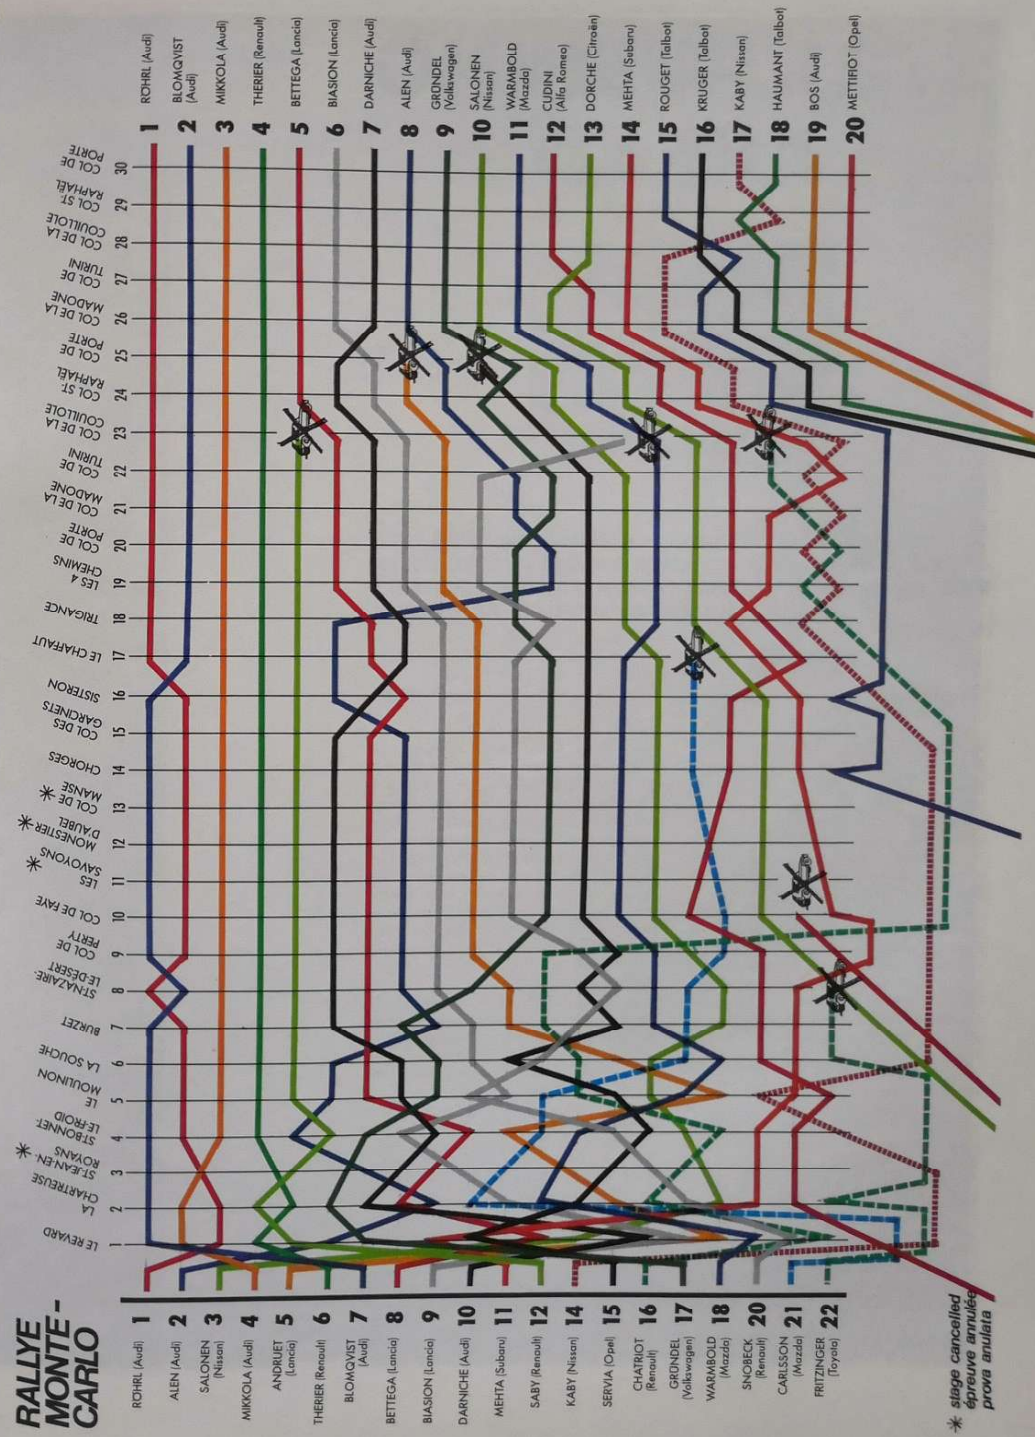 RALLYE
MONTE-
CARLO
1 ROHRL (Audi)
2 ALEN (Audi)
3 SALONEN
(Nissan)
4 MIKKOLA (Audi)
5 ANDRUET
(Lancia)
6 THERIER (Renault)
7 BLOMQVIST
(Audi)
8 BETTEGA (Lancia)
9 BIASION (Lancia)
10 DARNICHE (Audi)
11 MEHTA (Subaru)
12 SABY (Renault)
14 KABY (Nissan)
15 SERVIA (Opel)
16 CHATRIOT
(Renault)
17 GRÜNDEL
(Volkswagen)
18 WARMBOLD
(Mazda)
20 SNOBECK
(Renault)
21 CARLSSON
(Mazda)
22 FRITZINGER
(Toyota)
1 LE REVARD
2 LA
CHARTREUSE
3 ST-JEAN-EN-
ROYANS *
4 ST-BONNET-
LE-FROID
5 LE
MOULINON
6 LA SOUCHE
7 BURZET
8 ST-NAZAIRE-
LE-DÉSERT
9 COL DE
PERTY
10 COL DE FAYE
11 LES
SAVOYONS *
12 MONESTIER
D'AUBEL *
13 COL DE
MANSE *
14 CHORGES
15 COL DES
GARCINETS
16 SISTERON
17 LE CHAFFAUT
18 TRIGANCE
19 LES 4
CHEMINS
20 COL DE
PORTE
21 COL DE LA
MADONE
22 COL DE
TURINI
23 COL DE LA
COUILLOLE
24 COL ST.
RAPHAËL
25 COL DE
PORTE
26 COL DE LA
MADONE
27 COL DE
TURINI
28 COL DE LA
COUILLOLE
29 COL ST.
RAPHAËL
30 COL DE
PORTE
1 ROHRL (Audi)
2 BLOMQVIST
(Audi)
3 MIKKOLA (Audi)
4 THERIER (Renault)
5 BETTEGA (Lancia)
6 BIASION (Lancia)
7 DARNICHE (Audi)
8 ALEN (Audi)
9 GRÜNDEL
(Volkswagen)
10 SALONEN
(Nissan)
11 WARMBOLD
(Mazda)
12 CUDINI
(Alfa Romeo)
13 DORCHE (Citroën)
14 MEHTA (Subaru)
15 ROUGET (Talbot)
16 KRUGER (Talbot)
17 KABY (Nissan)
18 HAUMANT (Talbot)
19 BOS (Audi)
20 METTIFIOT (Opel)
* stage cancelled
épreuve annulée
prova anulata